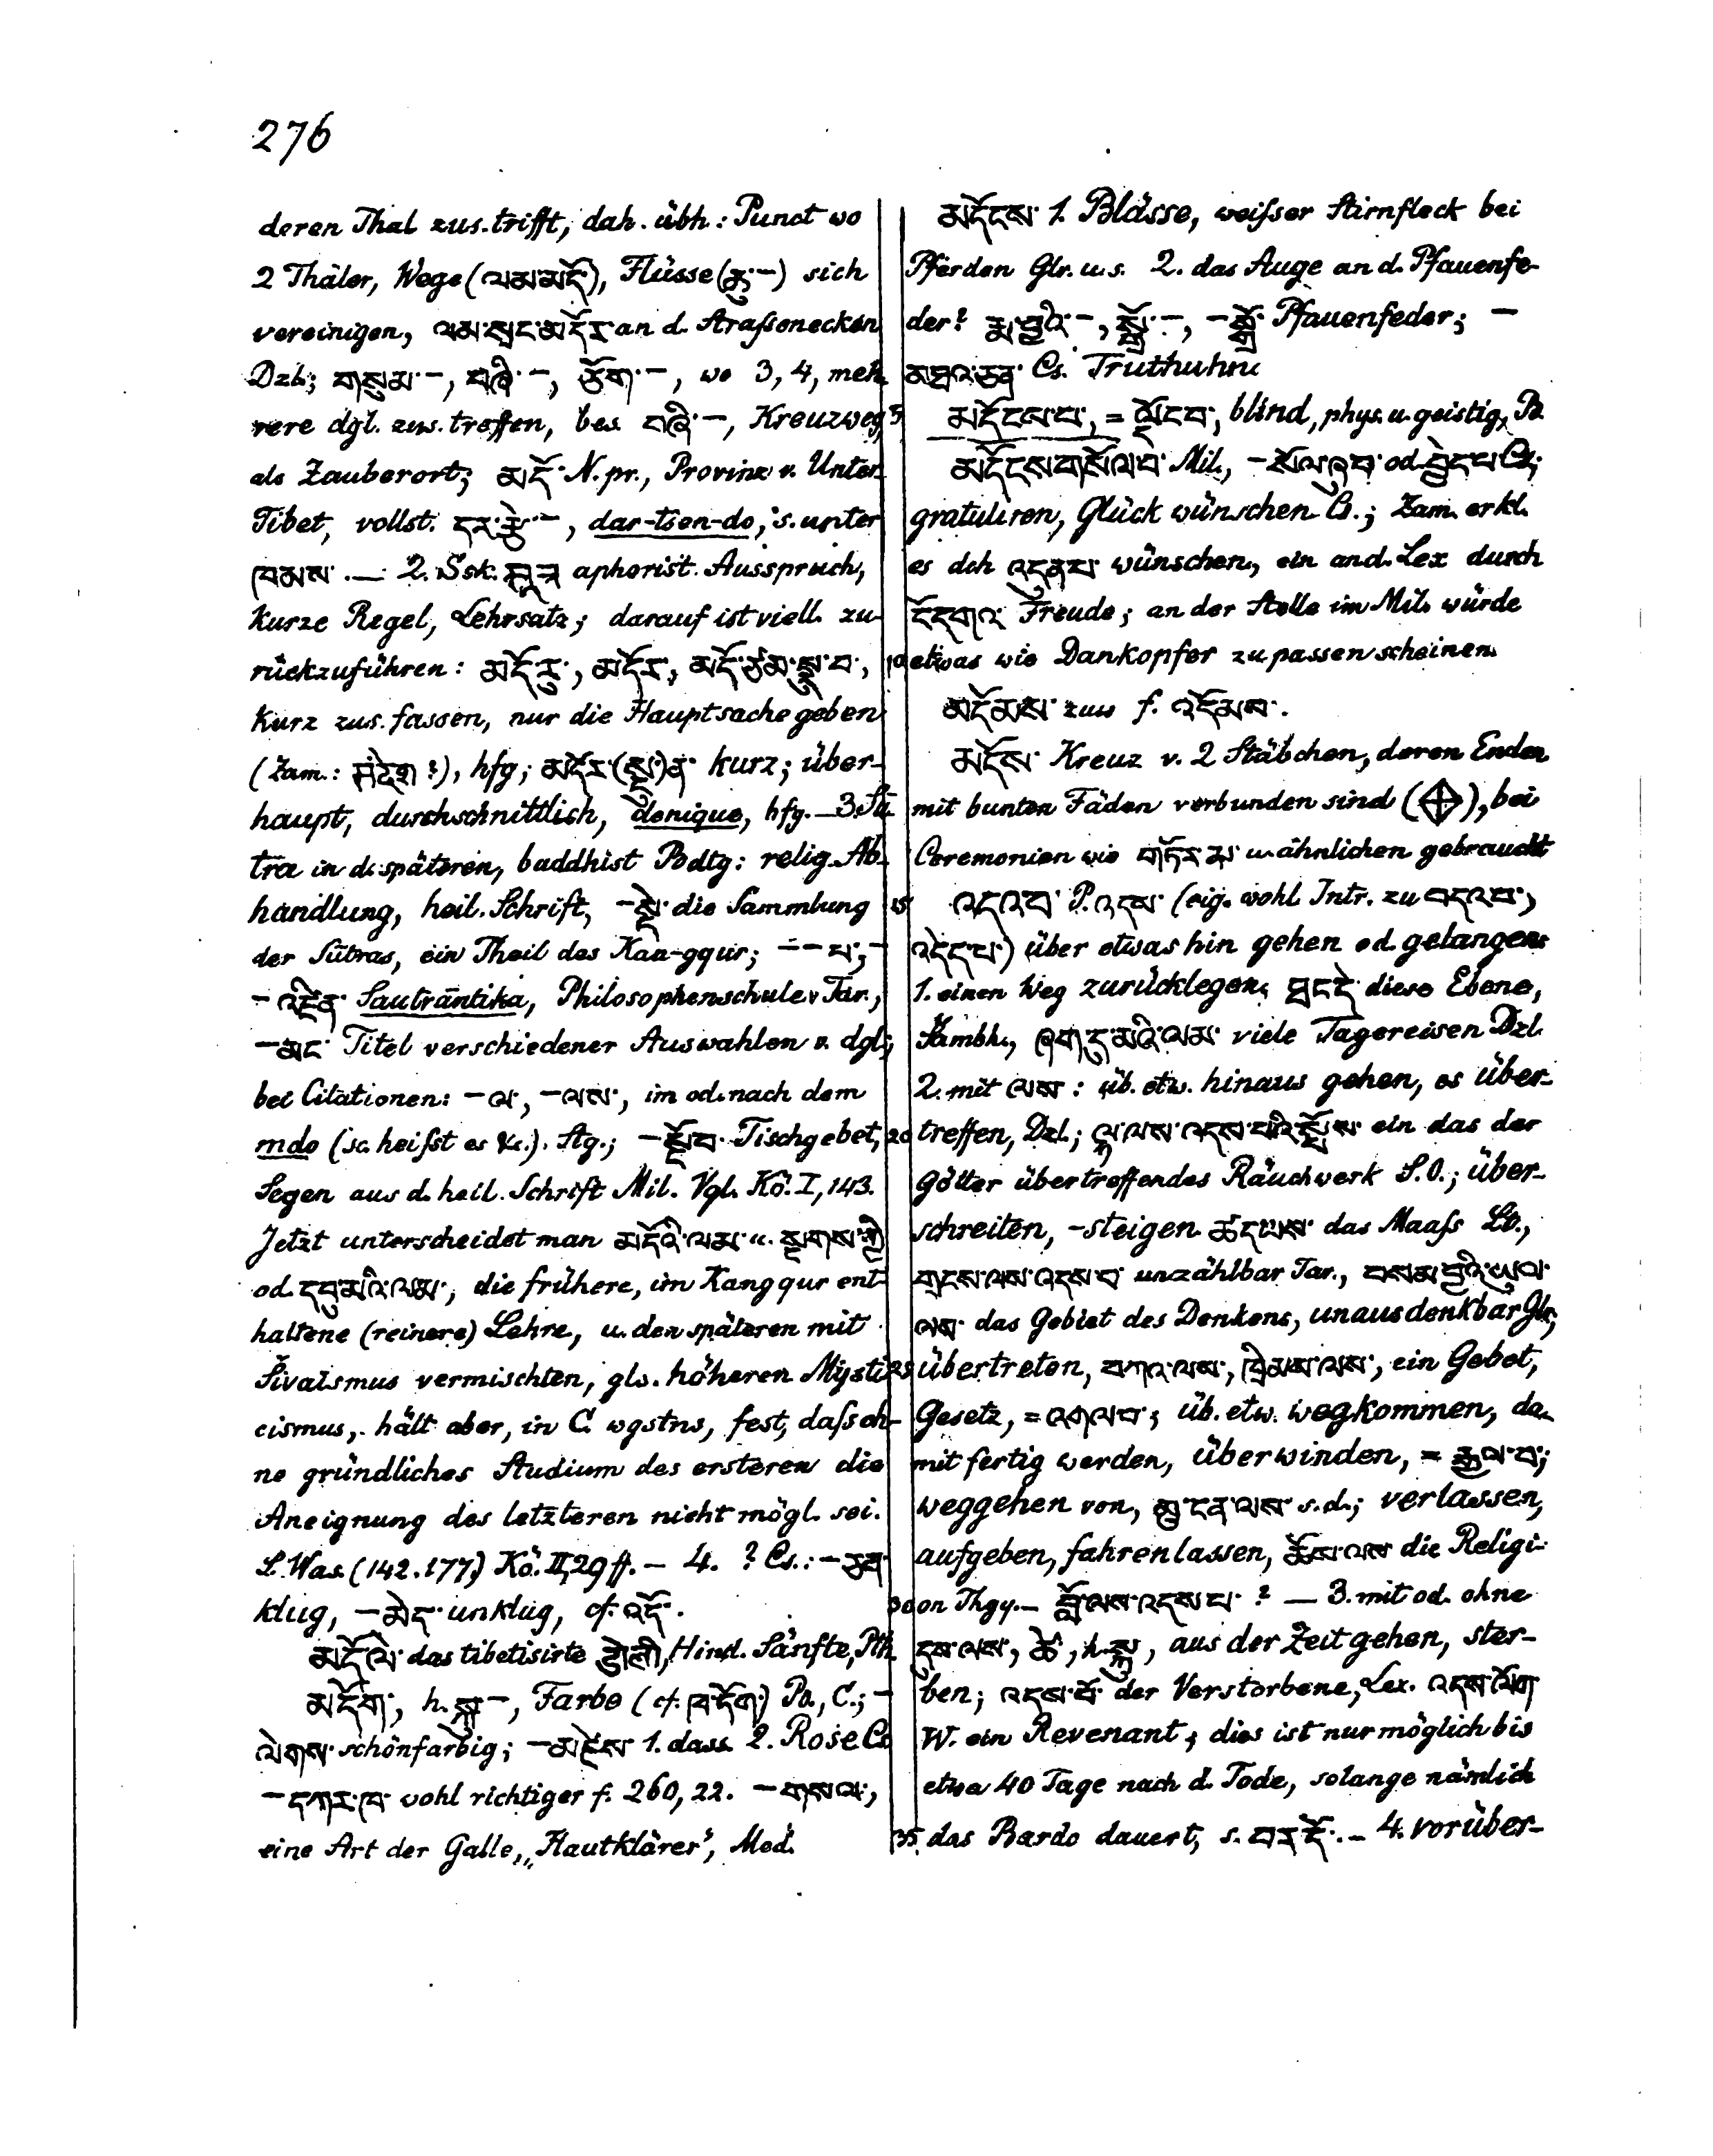 276
deren Thal zus. trifft, dah. übh.: Punct wo
2 Thäler, Wege (ལམ་མདོ་), Flüsse (ཆུ་–) sich
vereinigen, ལམ་སྲང་མདོར་ an d. Straßenecken
Dzl.; གསུམ་–, བཞི་–, ཚོག་–, wo 3, 4, meh-
rere dgl. zus. treffen, bes. བཞི་–, Kreuzweg,
als Zauberort; མདོ་ N. pr., Provinz v. Unter-
Tibet, vollst. དར་རྩེ་–, dar-tsen-do, s. unter
ཁམས་. — 2. Ssk. सूत्र aphorist. Ausspruch,
kurze Regel, Lehrsatz; darauf ist viell. zu-
rückzuführen: མདོ་རུ་, མདོར་, མདོ་ཙམ་སྨྲ་བ་,
kurz zus. fassen, nur die Hauptsache geben
(Zam.: संक्षेप ?), hfg; མདོར་(སྡུ་)ན་ kurz; über-
haupt, durchschnittlich, denique, hfg. — 3. Sū-
tra in d. späteren, buddhist Bdtg: relig. Ab-
handlung, heil. Schrift, –སྡེ་ die Sammlung
der Sūtras, ein Theil des Kan-gyur; ––པ་, –
–འཛིན་ Sautrāntika, Philosophenschule v Tar.,
–མང་ Titel verschiedener Auswahlen v. dgl.;
bei Citationen: –ལ་, –ལས་, im od. nach dem
mdo (sc. heißt es &c.). Stg.; –སྔོབ་ Tischgebet,
Segen aus d. heil. Schrift Mil. Vgl. Kö. I, 143.
Jetzt unterscheidet man མདོའི་ལམ་ u. སྔགས་ཀྱི་
od. དབུ་མའི་ལམ་, die frühere, im Kangyur ent-
haltene (reinere) Lehre, u. den späteren mit
Śivaismus vermischten, gls. höheren Mysti-
cismus, hält aber, in C. wgstns, fest, daß oh-
ne gründliches Studium des ersteren die
Aneignung des letzteren nicht mögl. sei.
S. Was. (142. 177.) Kö. II, 29 ff. — 4. ? Cs.: –ཅན་
klug, –མེད་ unklug, cf. འདོ་.
མདོ་ལི་ das tibetisirte डोली, Hind. Sänfte, Pth.
མདོག་, h. སྐུ་–, Farbe (cf. ཁ་དོག་) Pa., C.; –
ལེགས་ schönfarbig; –མཛེས་ 1. dass. 2. Rose Cs
–དཀར་ཁ་ wohl richtiger f. 260, 22. –གསལ་,
eine Art der Galle, „Hautklärer", Med.
མདོངས་ 1. Blässe, weißer Stirnfleck bei
Pferden Glr. u. s. 2. das Auge an d. Pfauenfe-
der? རྨ་བྱའི་–, སྒྲོ་–, –སྒྲོ་ Pfauenfeder; —
མཐའ་ཅན་ Cs. Truthuhn
5 མདོངས་པ་, = ལྡོངབ་, blind, phys. u. geistig, B
མདོངས་གསོལ་བ་ Mil., –སོལ་ཞུབ་ od. བྱེད་པ་ Cs;
gratuliren, Glück wünschen Cs.; Zam. erkl.
es dch འདུན་པ་ wünschen, ein and. Lex durch
དོདགའ་ Freude; an der Stelle im Mil. würde
10 etwas wie Dankopfer zu passen scheinen.
མདོམས་ zuw f. འདོམས་.
མདོས་ Kreuz v. 2 Stäbchen, deren Enden
mit bunten Fäden verbunden sind ( ), bei
Ceremonien wie གཏོར་མ་ u. ähnlichen gebraucht
15 འདའ་བ་ P. འདས་ (eig. wohl Intr. zu བདའ་བ་,
འདེད་པ་) über etwas hin gehen od. gelangen
1. einen Weg zurücklegen, ཐང་དེ་ diese Ebene,
Śambh., ཞག་དུ་མའི་ལམ་ viele Tagereisen Dzl.
2. mit ལས་: üb. etw. hinaus gehen, es über-
20 treffen, Dzl.; ལྷ་ལས་འདས་པའི་སྤོས་ ein das der
Götter übertreffendes Räuchwerk S. O.; über-
schreiten, –steigen ཚད་ལས་ das Maaß LB.,
གྲངས་ལས་འདས་པ་ unzählbar Tar., བསམ་བྱའི་ཡུལ་
ལས་ das Gebiet des Denkens, unausdenkbar Glr.,
25 übertreten, བཀའ་ལས་, ཁྲིམས་ལས་, ein Gebot,
Gesetz, = འགལ་བ་; üb. etw. wegkommen, da-
mit fertig werden, überwinden, = རྒྱལ་བ་;
weggehen von, མྱ་ངན་ལས་ s. d.; verlassen,
aufgeben, fahren lassen, ཆོས་ལས་ die Religi-
30 on Thgy. — བློ་ལས་འདས་པ་? — 3. mit od. ohne
དུས་ལས་, ཚེ་, h. སྐུ་, aus der Zeit gehen, ster-
ben; འདས་པོ་ der Verstorbene, Lex. འདས་ལོག་
W. ein Revenant; dies ist nur möglich bis
etwa 40 Tage nach d. Tode, solange nämlich
35 das Bardo dauert, s. བར་དོ་. — 4. vorüber-